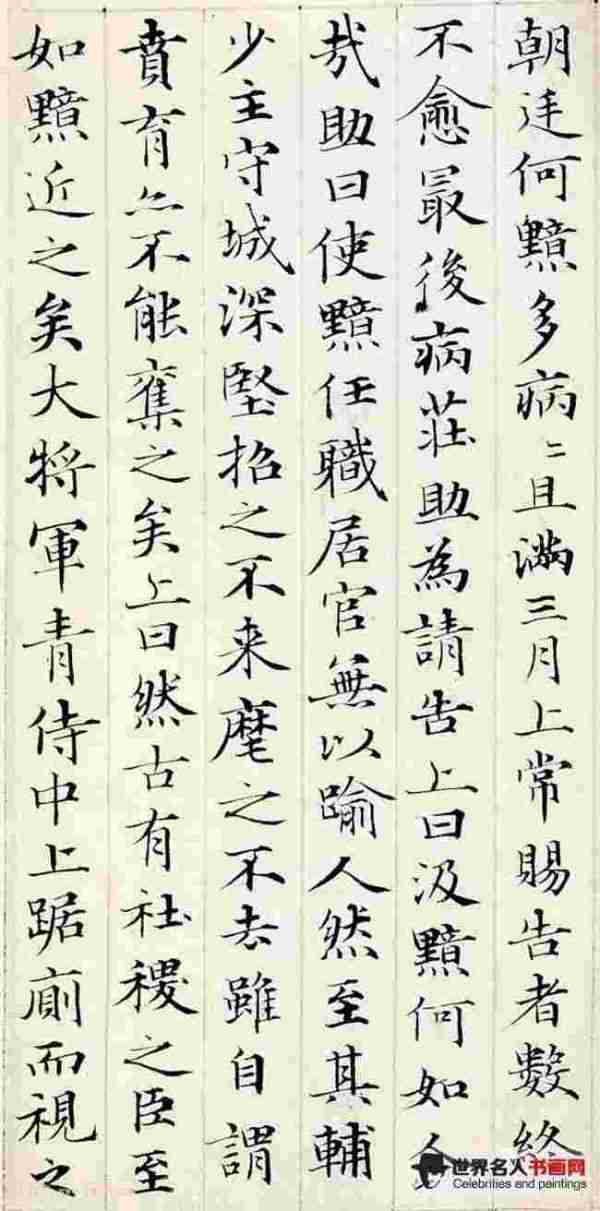 朝廷何黯多病〻且满三月上常賜告者數終
不愈最後病莊助為請告上曰汲黯何如人
㢤助曰使黯任職居官無以踰人然至其輔
少主守城深堅招之不来麾之不去雖自謂
賁育亦不能奪之矣上曰然古有社稷之臣至
如黯近之矣大将軍青侍中上踞廁而視之
世界名人书画网
Celebrities and paintings